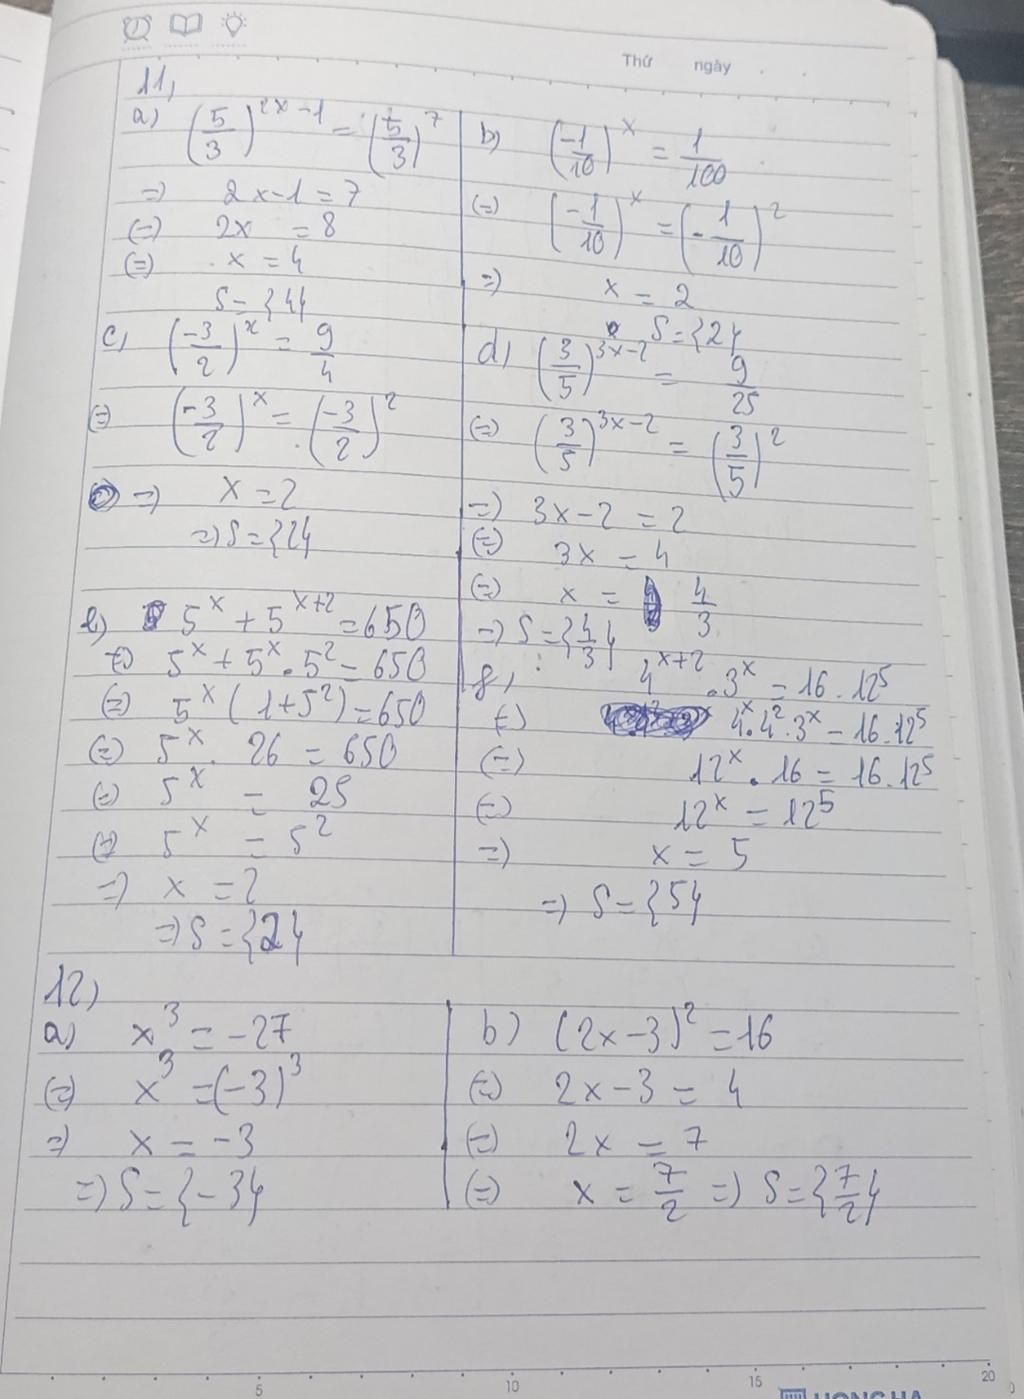 Thứ ngày
11,
a) (5/3)^(2x-1) = (5/3)^7
=> 2x-1=7
(=) 2x = 8
(=) x = 4
S={4}
b) (-1/10)^x = 1/100
(=) (-1/10)^x = (-1/10)^2
=> x = 2
S={2}
c, (-3/2)^x = 9/4
(=) (-3/2)^x = (-3/2)^2
=> x=2
=> S={2}
d, (3/5)^(3x-2) = 9/25
(=) (3/5)^(3x-2) = (3/5)^2
=> 3x-2=2
(=) 3x = 4
(=) x = 4/3
=> S={4/3}
e) 5^x + 5^(x+2) = 650
(=) 5^x + 5^x . 5^2 = 650
(=) 5^x (1+5^2) = 650
(=) 5^x . 26 = 650
(=) 5^x = 25
(=) 5^x = 5^2
=> x = 2
=> S={2}
f, 4^(x+2) . 3^x = 16 . 12^5
(=) 4^x . 4^2 . 3^x = 16 . 12^5
(=) 12^x . 16 = 16 . 12^5
(=) 12^x = 12^5
=> x = 5
=> S={5}
12)
a) x^3 = -27
(=) x^3 = (-3)^3
=> x = -3
=> S={-3}
b) (2x-3)^2 = 16
(=) 2x-3 = 4
(=) 2x = 7
(=) x = 7/2 => S={7/2}
5 10 15 20
HONG HA